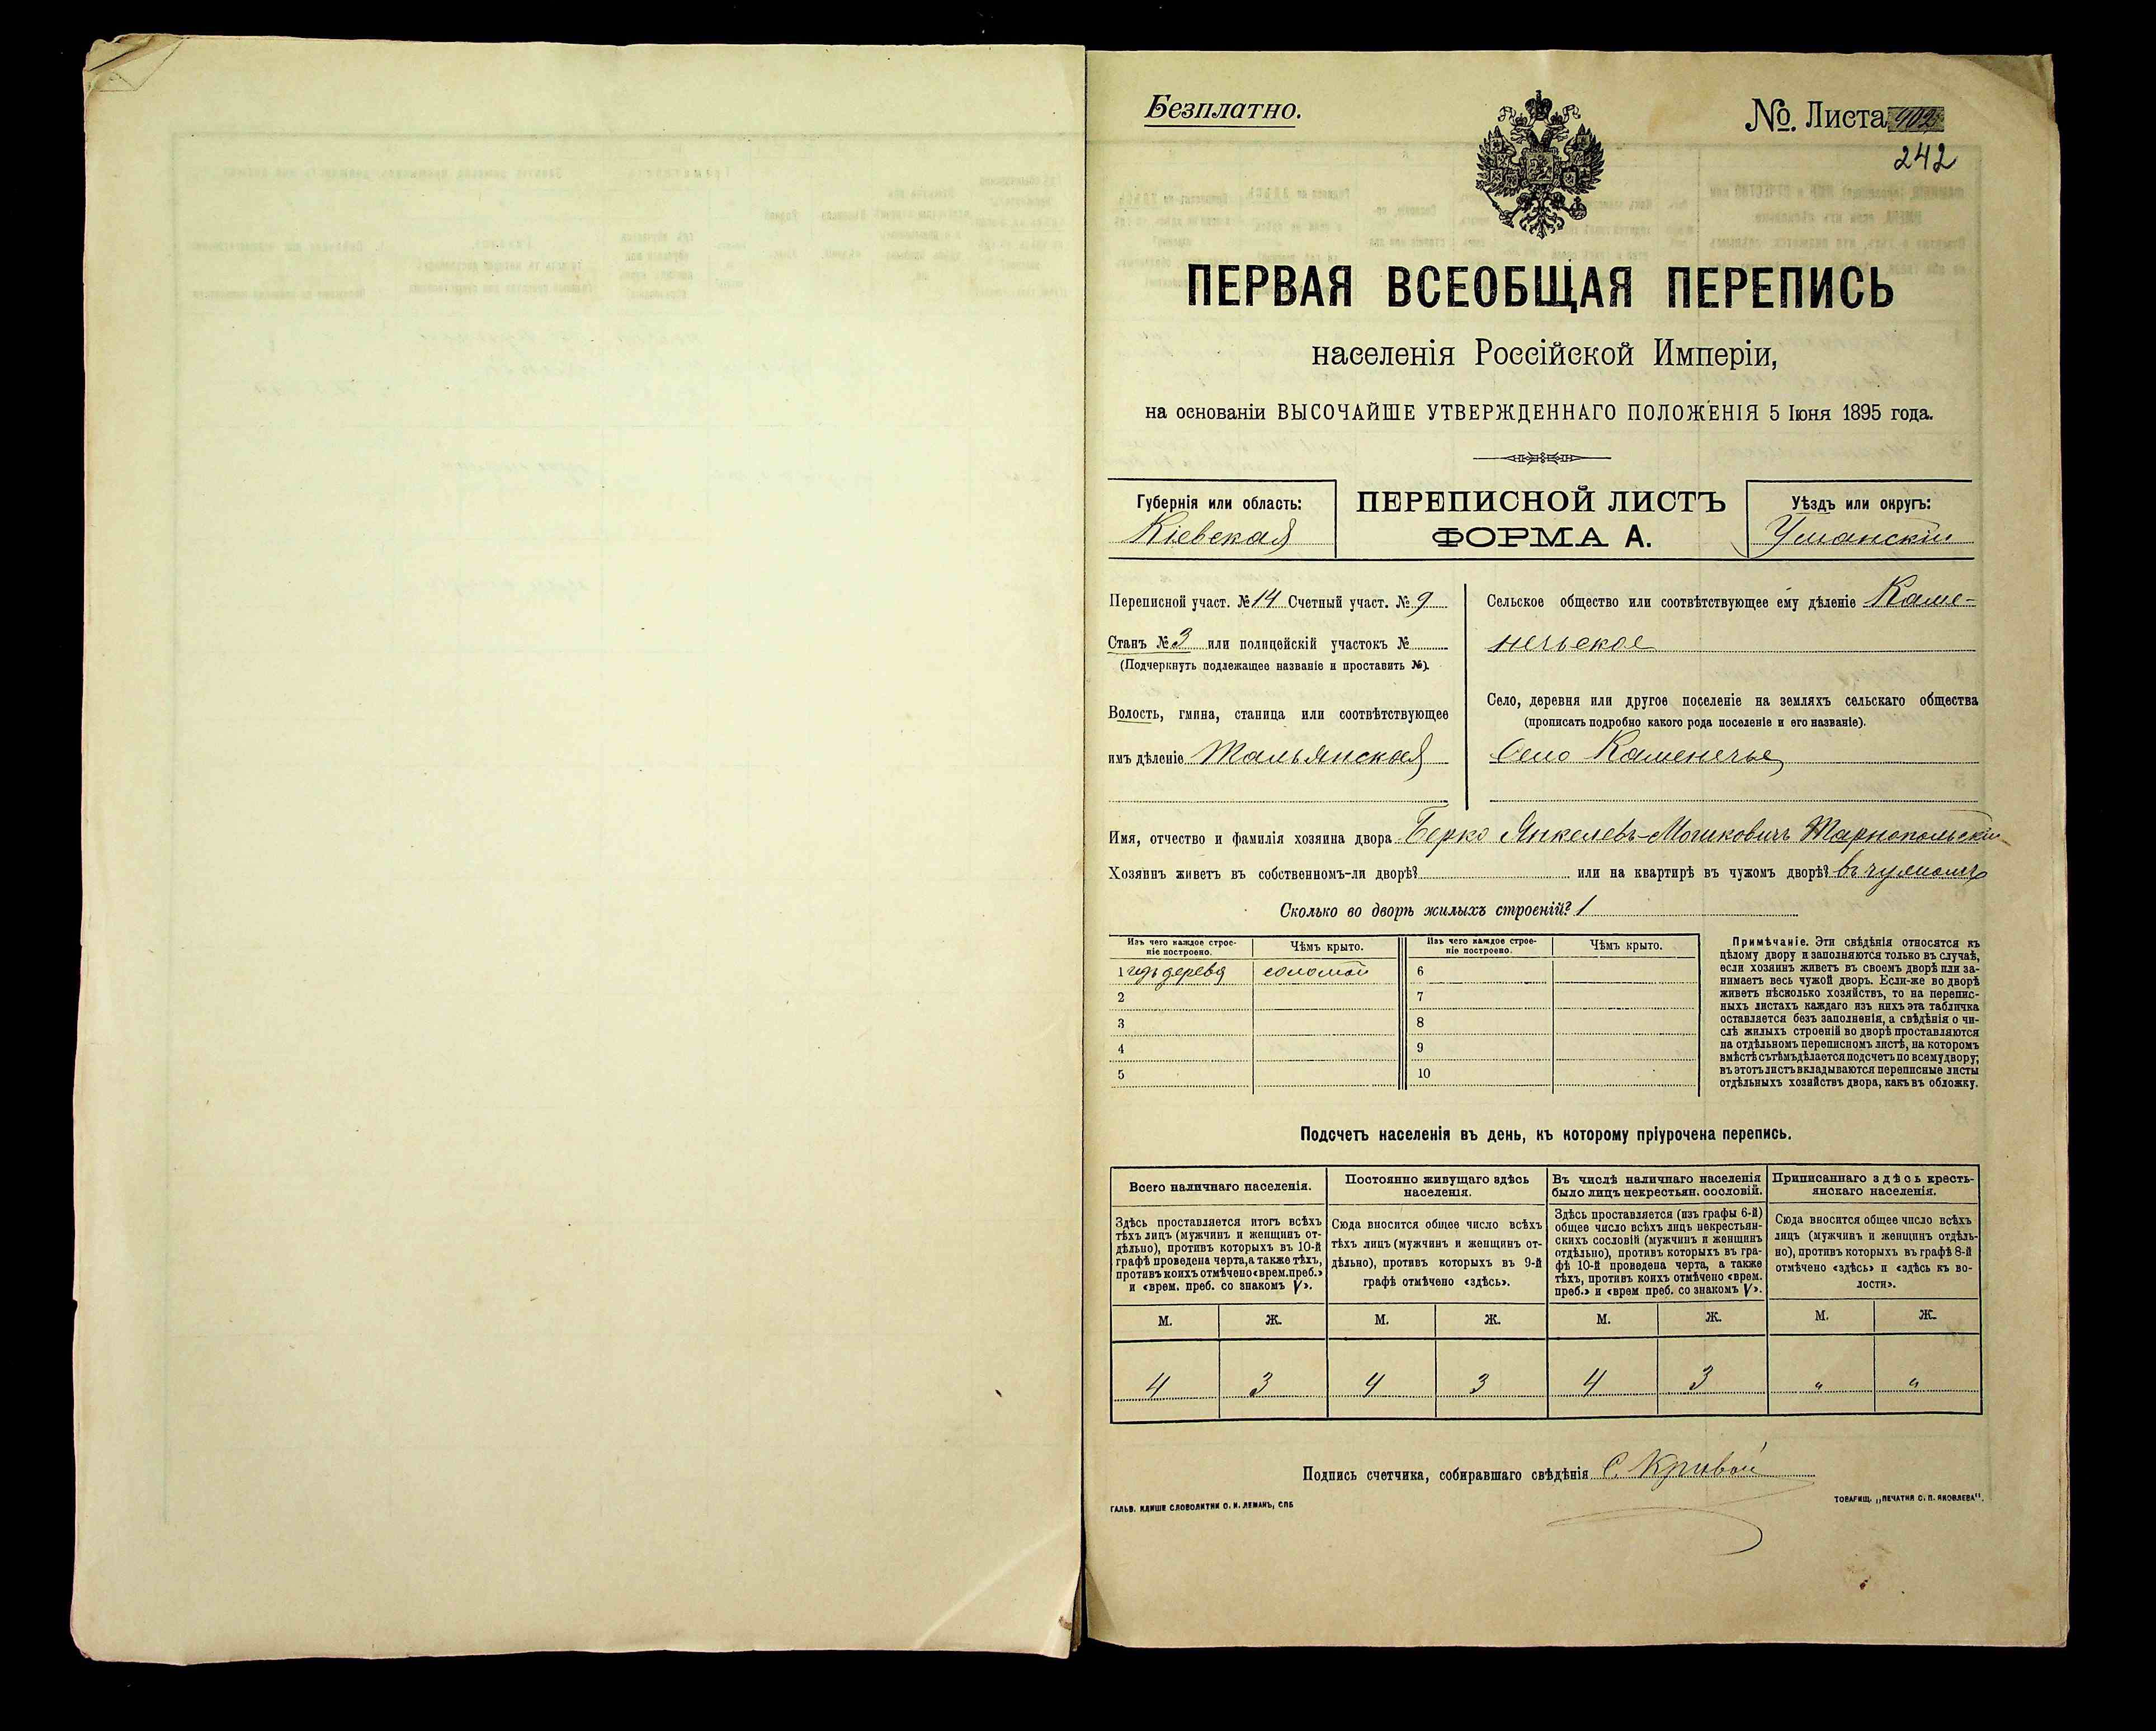 Безплатно.
№. Листа
242
ПЕРВАЯ ВСЕОБЩАЯ ПЕРЕПИСЬ
населенія Россійской Имперіи,
на основаніи ВЫСОЧАЙШЕ УТВЕРЖДЕННАГО ПОЛОЖЕНІЯ 5 Іюня 1895 года.
Губернія или область:
Кіевская
ПЕРЕПИСНОЙ ЛИСТЪ
ФОРМА А.
Уѣздъ или округъ:
Уманскій
Переписной участ. № 14 Счетный участ. № 9
Станъ № 3 или полицейскій участокъ №
(Подчеркнуть подлежащее названіе и проставить №).
Волость, гмина, станица или соотвѣтствующее
имъ дѣленіе Тальянская
Сельское общество или соотвѣтствующее ему дѣленіе Каме-
нечьское
Село, деревня или другое поселеніе на земляхъ сельскаго общества
(прописать подробно какого рода поселеніе и его названіе).
Село Каменечье
Имя, отчество и фамилія хозяина двора Берко Янкелевъ-Мошковичъ Тарнопольскій
Хозяинъ живетъ въ собственномъ-ли дворѣ? или на квартирѣ въ чужомъ дворѣ? въ чужомъ
Сколько во дворѣ жилыхъ строеній? 1
Изъ чего каждое строе-
ніе построено.
Чѣмъ крыто.
Изъ чего каждое строе-
ніе построено.
Чѣмъ крыто.
1 изъ дерева соломой 6
2 7
3 8
4 9
5 10
Примѣчаніе. Эти свѣдѣнія относятся къ
цѣлому двору и заполняются только въ случаѣ,
если хозяинъ живетъ въ своемъ дворѣ или за-
нимаетъ весь чужой дворъ. Если-же во дворѣ
живетъ нѣсколько хозяйствъ, то на перепис-
ныхъ листахъ каждаго изъ нихъ эта табличка
оставляется безъ заполненія, а свѣдѣнія о чи-
слѣ жилыхъ строеній во дворѣ проставляются
на отдѣльномъ переписномъ листѣ, на которомъ
вмѣстѣ съ тѣмъ дѣлается подсчетъ по всему двору;
въ этотъ листъ вкладываются переписные листы
отдѣльныхъ хозяйствъ двора, какъ въ обложку.
Подсчетъ населенія въ день, къ которому пріурочена перепись.
Всего наличнаго населенія.
Постоянно живущаго здѣсь
населенія.
Въ числѣ наличнаго населенія
было лицъ некрестьян. сословій.
Приписаннаго здѣсь кресть-
янскаго населенія.
Здѣсь проставляется итогъ всѣхъ
тѣхъ лицъ (мужчинъ и женщинъ от-
дѣльно), противъ которыхъ въ 10-й
графѣ проведена черта, а также тѣхъ,
противъ коихъ отмѣчено «врем. преб.»
и «врем. преб. со знакомъ V».
Сюда вносится общее число всѣхъ
тѣхъ лицъ (мужчинъ и женщинъ от-
дѣльно), противъ которыхъ въ 9-й
графѣ отмѣчено «здѣсь».
Здѣсь проставляется (изъ графы 6-й)
общее число всѣхъ лицъ некрестьян-
скихъ сословій (мужчинъ и женщинъ
отдѣльно), противъ которыхъ въ гра-
фѣ 10-й проведена черта, а также
тѣхъ, противъ коихъ отмѣчено «врем.
преб.» и «врем преб. со знакомъ V».
Сюда вносится общее число всѣхъ
лицъ (мужчинъ и женщинъ отдѣль-
но), противъ которыхъ въ графѣ 8-й
отмѣчено «здѣсь» и «здѣсь къ во-
лости».
М. Ж. М. Ж. М. Ж. М. Ж.
4 3 4 3 4 3 " "
Подпись счетчика, собиравшаго свѣдѣнія С. Кривой
ГАЛЬВ. КЛИШЕ СЛОВОЛИТНИ О. И. ЛЕМАНЪ, СПБ
ТОВАРИЩ. „ПЕЧАТНЯ С. П. ЯКОВЛЕВА".